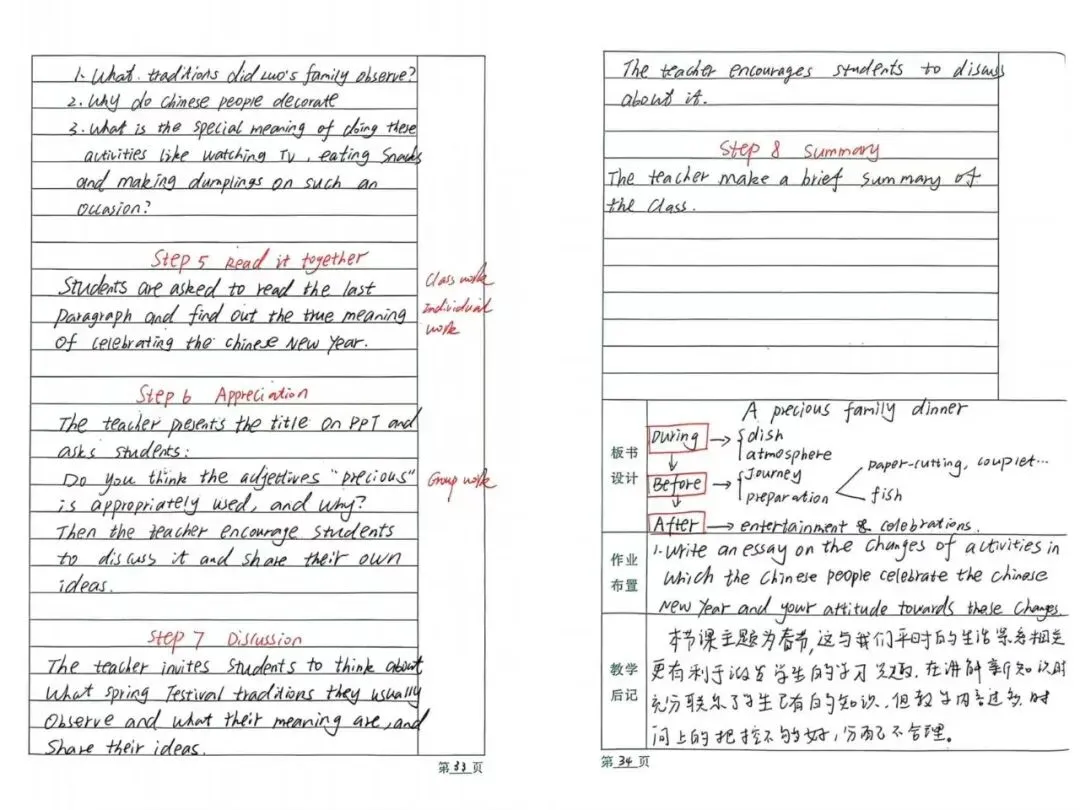 1. What traditions did Luo's family observe?
2. Why do Chinese people decorate
3. What is the special meaning of doing these
activities like watching TV, eating snacks
and making dumplings on such an
occasion?
Step 5 Read it together
Students are asked to read the last
paragraph and find out the true meaning
of celebrating the Chinese New Year.
Class work
Individual
work
Step 6 Appreciation
The teacher presents the title on PPT and
asks students:
Do you think the adjectives "precious"
is appropriately used, and why?
Then the teacher encourage students
to discuss it and share their own
ideas.
Group work
Step 7 Discussion
The teacher invites students to think about
what spring festival traditions they usually
observe and what their meaning are, and
share their ideas.
第 33 页
The teacher encourages students to discuss
about it.
Step 8 Summary
The teacher make a brief summary of
the class.
板书
设计
A precious family dinner
During → dish
atmosphere
Before → Journey
preparation
paper-cutting, couplet...
fish
After → entertainment & celebrations.
作业
布置
1. Write an essay on the changes of activities in
which the Chinese people celebrate the Chinese
New Year and your attitude towards these changes.
教学
后记
本节课主题为春节,这与我们平时的生活息息相关
更有利于激发学生的学习兴趣.在讲解新知识时
充分联系了学生已有的知识,但教学内容过多,时
间上的把控不够好,分配不合理。
第 34 页